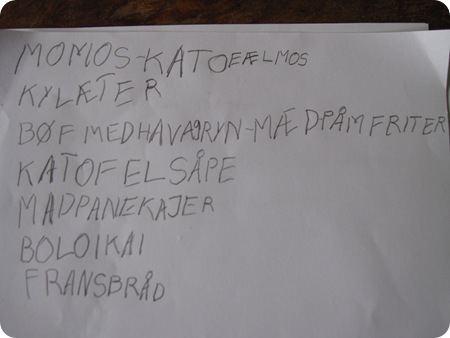 MOMOS-KATOFÆLMOS
KYLÆTER
BØF MEDHAVAGRYN-MÆDPÅMFRITER
KATOFELSÅPE
MADPANEKAJER
BOLOIKAI
FRANSBRÅD